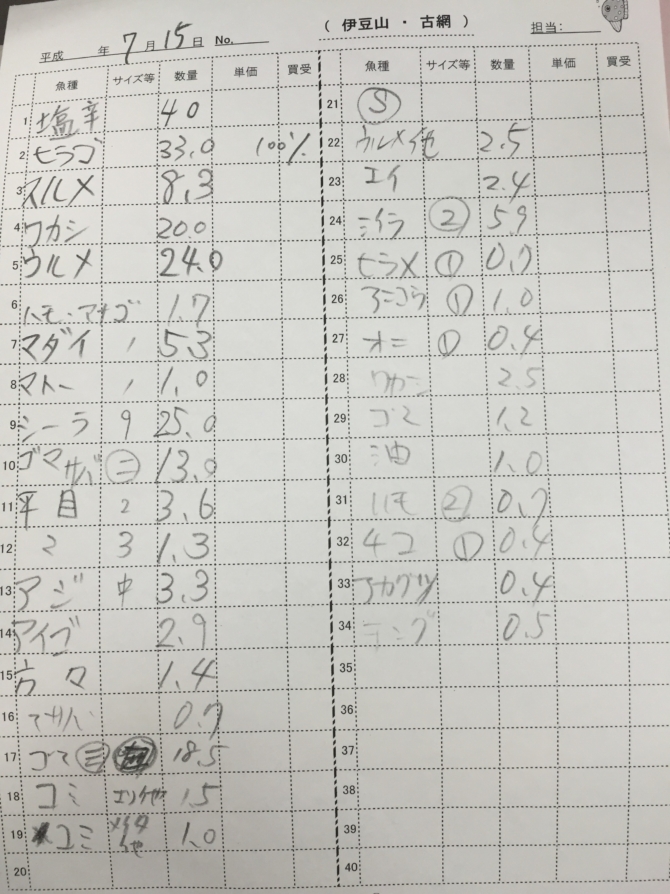 ( 伊豆山 ・ 古網 )
平成 年 7 月 15 日 No. 担当:
魚種 サイズ等 数量 単価 買受
1 塩辛 40
2 ヒラゴ 33.0 100%
3 スルメ 8.3
4 ワカシ 20.0
5 ウルメ 24.0
6 ハモ・アナゴ 1.7
7 マダイ 1 5.3
8 マトー 1 1.0
9 シーラ 9 25.0
10 ゴマサバ ㊁ 13.0
11 平目 2 3.6
12 〃 3 1.3
13 アジ 中 3.3
14 アイゴ 2.9
15 方々 1.4
16 マサバ 0.7
17 ゴマ ㊂ 18.5
18 ゴミ 1.5
19 ゴミ 1.0
20
魚種 サイズ等 数量 単価 買受
21 Ⓢ
22 ウルメ他 2.5
23 エイ 2.4
24 ミイラ ② 5.9
25 ヒラメ ① 0.7
26 アンコウ ① 1.0
27 オニ ① 0.4
28 ワカシ 2.5
29 ゴマ 1.2
30 油 1.0
31 ハモ ② 0.7
32 タコ ① 0.4
33 アカグツ 0.4
34 テング 0.5
35
36
37
38
39
40